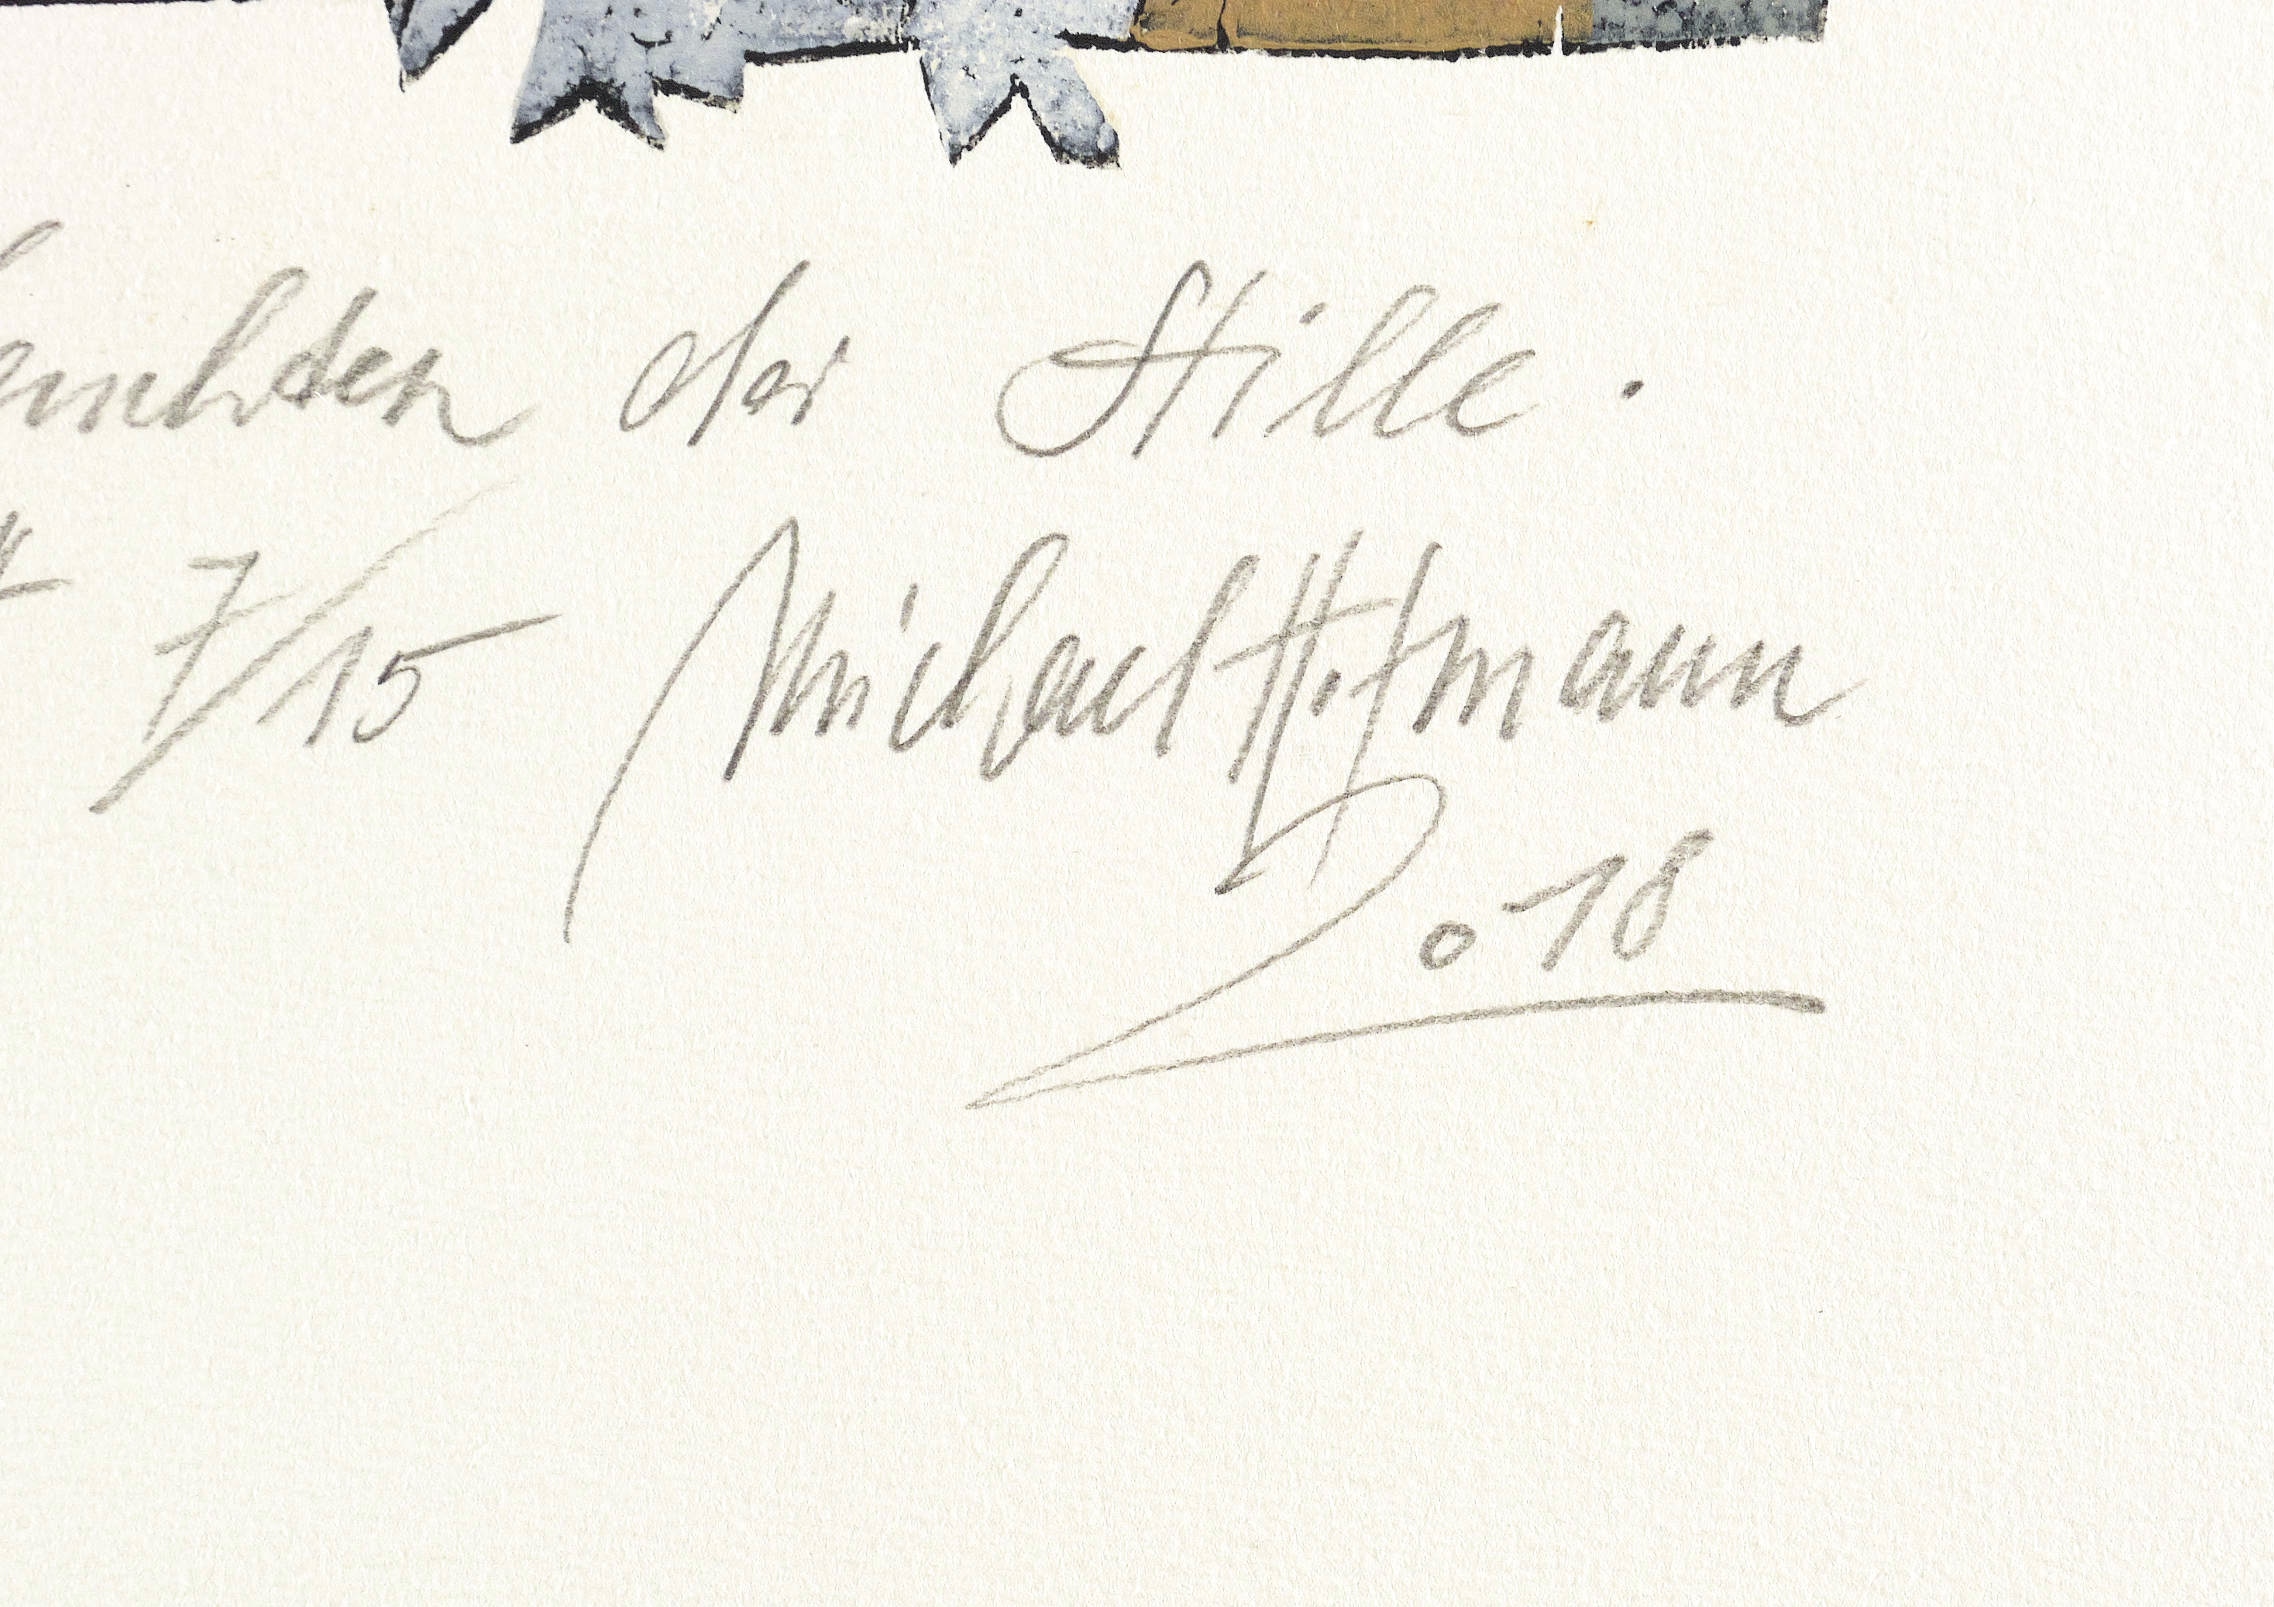 der Stille.
7/15 Michael Hofmann
2018